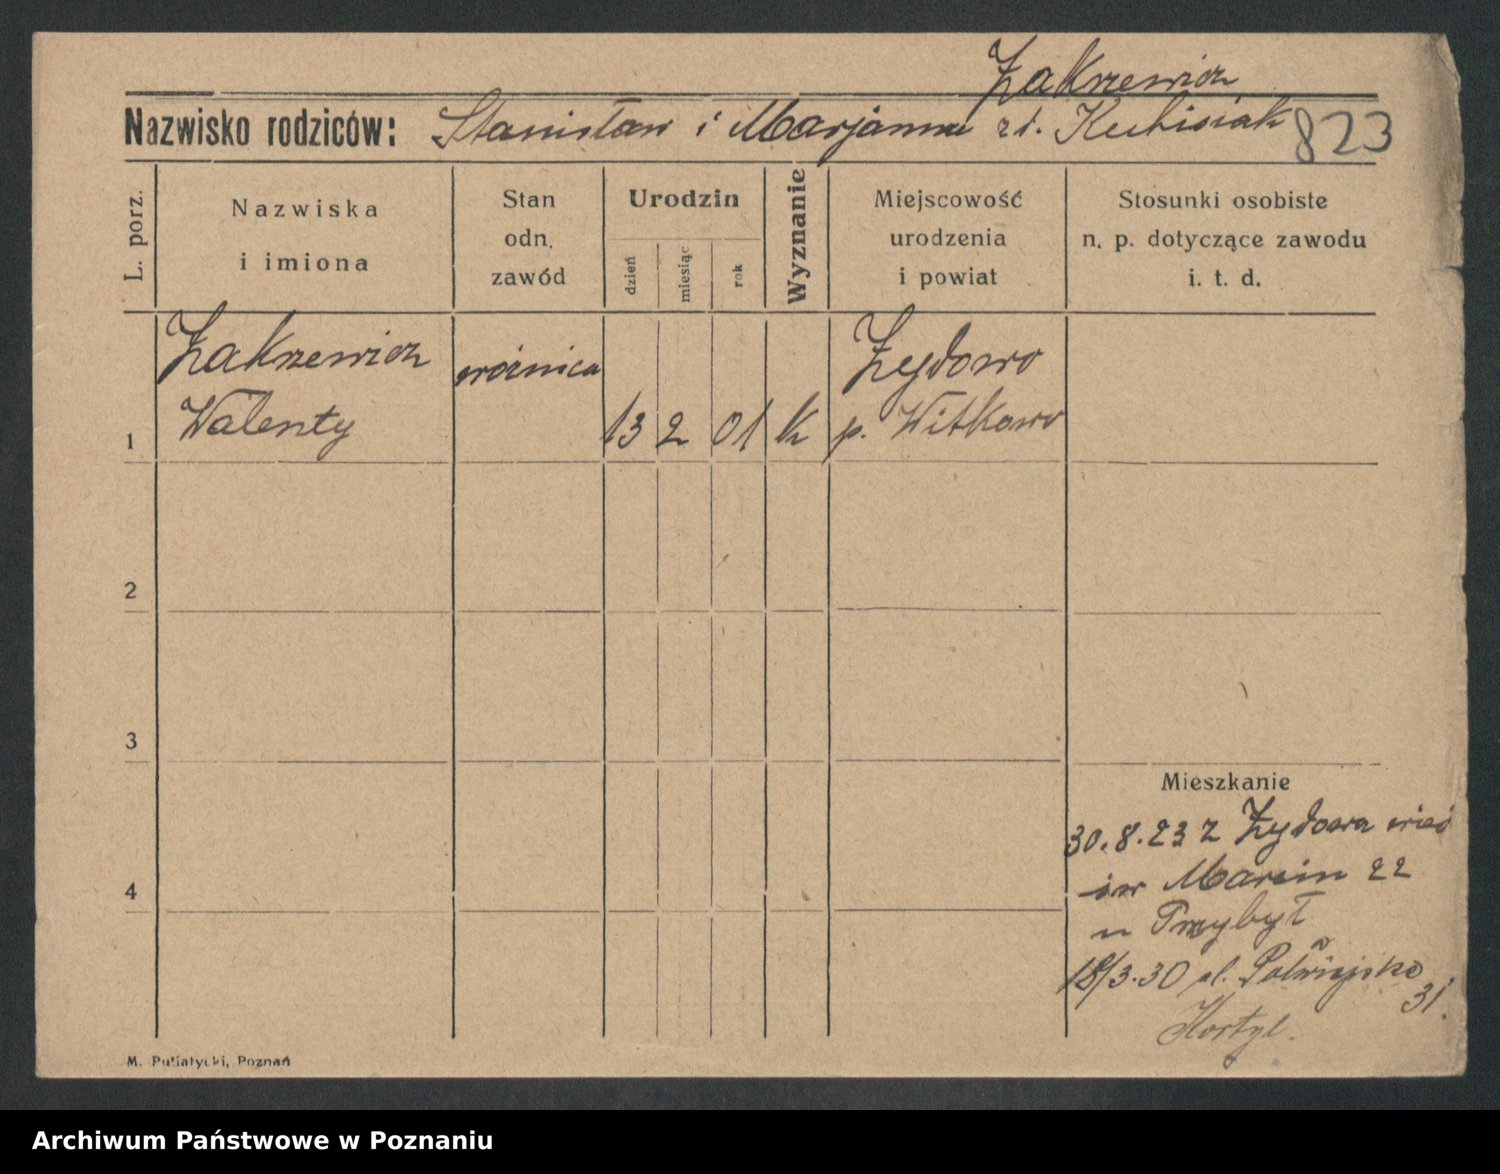 Zakrzewicz
Nazwisko rodziców: Stanisław i Marjanna zd. Kubisiak 823
L. porz.
Nazwiska
i imiona
Stan
odn.
zawód
Urodzin
dzień
miesiąc
rok
Wyznanie
Miejscowość
urodzenia
i powiat
Stosunki osobiste
n. p. dotyczące zawodu
i. t. d.
1
Zakrzewicz
Walenty
woźnica
13 2 01 k
Żydowo
p. Witkowo
2
3
4
Mieszkanie
30.8.23 z Żydowa wieś
św Marcin 22
u Przybył
18/3.30 ul. Półwiejska
31.
M. Putiatycki, Poznań
Archiwum Państwowe w Poznaniu